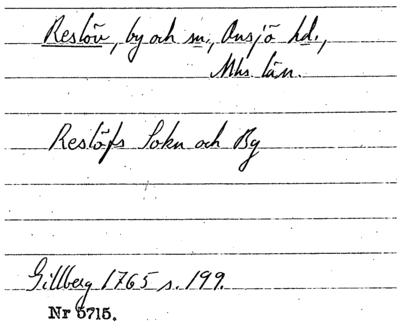 Reslöv, by och sn., Onsjö hd.,
Mhs. län.
Reslöfs Sokn och By
Gillberg 1765 s. 199.
Nr 5715.